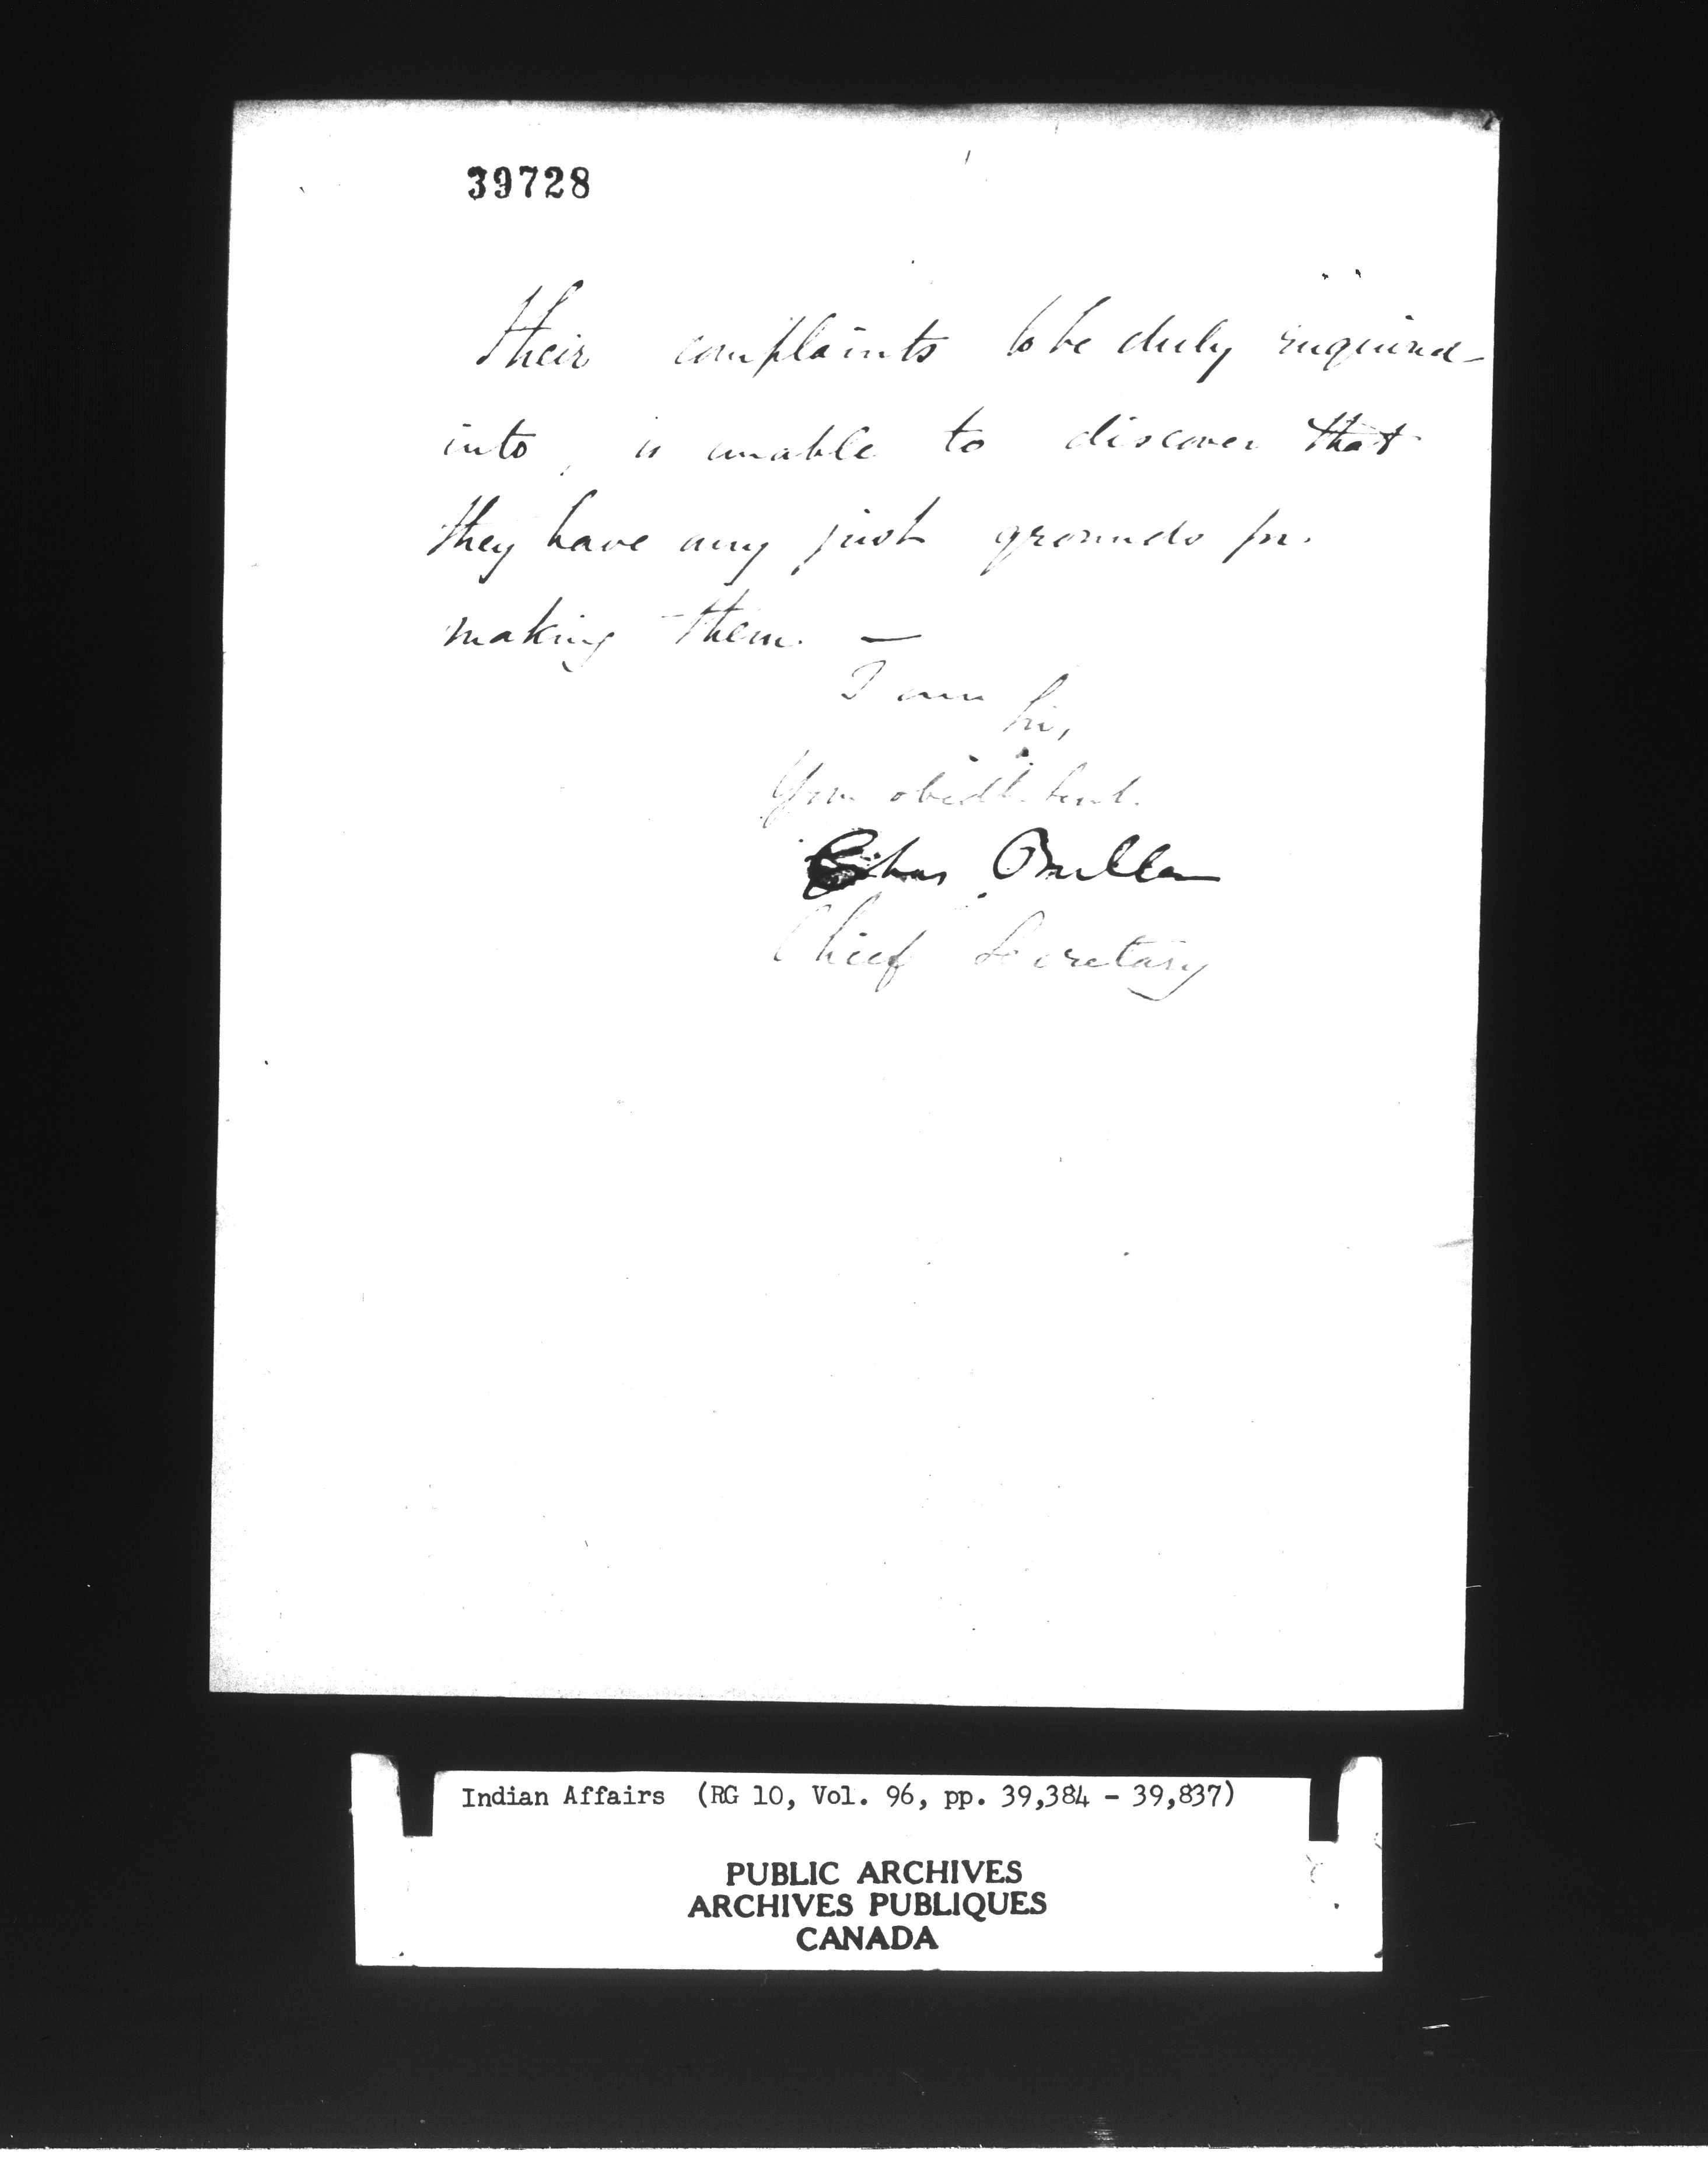 39728
their complaints to be duly enquired
into, is unable to discover that
they have any just grounds for
making them. —
I am Sir,
Your obedt. Servt.
Chas Buller
Chief Secretary
Indian Affairs (RG 10, Vol. 96, pp. 39,384 - 39,837)
PUBLIC ARCHIVES
ARCHIVES PUBLIQUES
CANADA